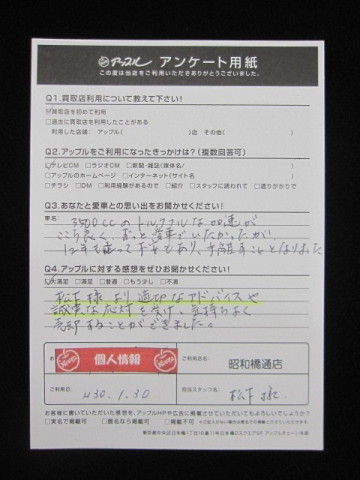 アップル アンケート用紙
この度は当店をご利用いただきありがとうございました。
Q1.買取店利用について教えて下さい!
☑買取店を初めて利用
□過去に買取店を利用したことがある
利用した店舗: アップル( )店 その他( )
Q2.アップルをご利用になったきっかけは?(複数回答可)
☑テレビCM □ラジオCM □新聞・雑誌(媒体名/ )
□アップルのホームページ □インターネット(サイト名 )
□チラシ □DM □利用経験があるので □紹介 □スタッフに誘われて □通りがかりで
Q3.あなたと愛車との思い出をお聞かせください!
車名:
3500ccのトルクフルな加速が
ここち良く、ずっと愛車でいたかったが、
12年も乗って不安もあり、手放すことになりました
Q4.アップルに対する感想をぜひお聞かせください!
☑大満足 □満足 □普通 □もう少し □不満
松下様より適切なアドバイスや
誠実な応対を受け、気持ちよく
売却することができました。
お
個人情報
ご利用店名:
昭和橋通店
ご利用日:
H30.1.30
担当スタッフ名:
松下様
お客様に書いていただいた感想を、アップルHPや広告に掲載させていただいてもよろしいでしょうか?
□実名で掲載可 □匿名なら掲載可 □掲載不可